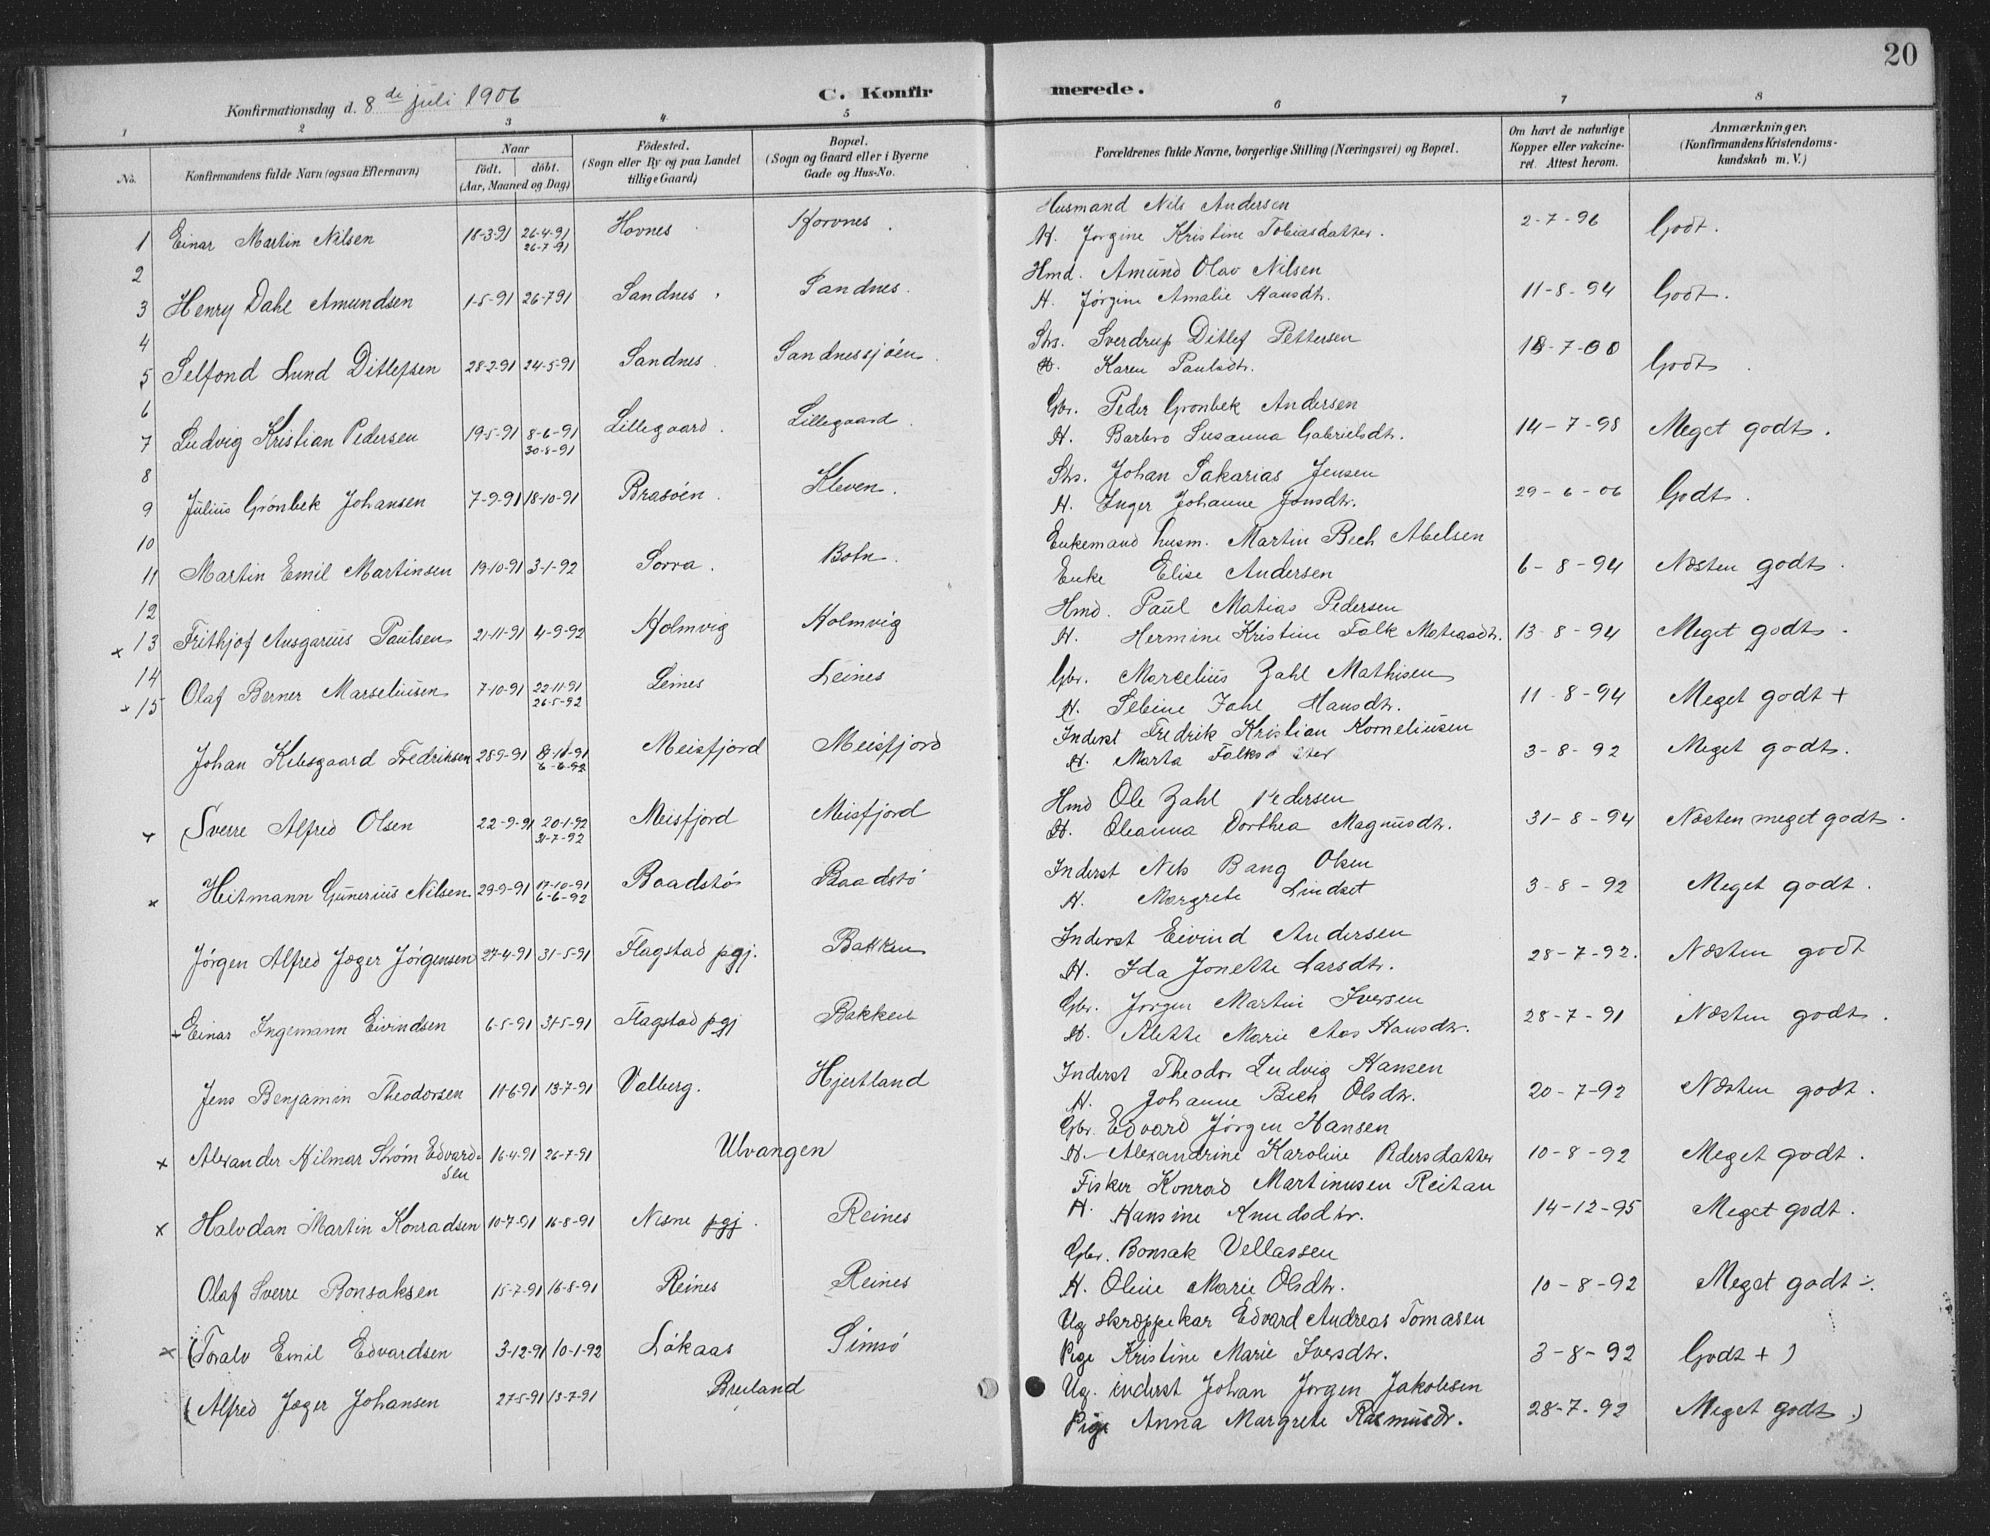 20
Konfirmationsdag d. 8de juli 1906
C. Konfirmerede.
1 2 3 4 5 6 7 8
No.
Konfirmandens fulde Navn (ogsaa Efternavn)
Naar
født. døbt.
(Aar, Maaned og Dag)
Födested.
(Sogn eller By og paa Landet
tillige Gaard)
Bopæl.
(Sogn og Gaard eller i Byerne
Gade og Hus-No.
Forældrenes fulde Navne, borgerlige Stilling (Næringsvei) og Bopæl.
Om havt de naturlige
Kopper eller vakcine-
ret. Attest herom.
Anmærkninger.
(Konfirmandens Kristendoms-
kundskab m. V.)
Husmand Nils Andersen
1 Einar Martin Nilsen 18-3-91 26-4-91 26-7-91 Hovnes Korvnes. H. Jørgine Kristine Tobiasdatter. 2-7-96 Godt.
2 Hmd. Amund Olav Nilsen
3 Henry Dahl Amundsen 1-5-91 26-7-91 Sandnes Sandnes. H. Jørgine Amalie Hansdtr. 11-8-94 Godt.
4 Sverdrup Ditlef Pettersen
5 Selfond Lund Ditlefsen 28-2-91 24-5-91 Sandnes Sandnessjöen. H. Karen Paulsdtr. 18-7-00 Godt
6 Gbr. Peder Grønbek Andersen
7 Ludvig Kristian Pedersen 19-5-91 8-6-91 30-8-91 Lillegaard. Lillegaard. H. Barbro Susanna Gabrielsdtr. 14-7-98 Meget godt.
8 Johan Sakarias Jensen
9 Julius Grönbek Johansen 7-9-91 18-10-91 Brasöen. Kleven. H. Inger Johanne Jonsdtr. 29-6-06 Godt.
10 Enkemand husm. Martin Bech Abelsen
11 Martin Emil Martinsen 19-10-91 3-1-92 Sorra. Botn. Enke Elise Andersen 6-8-94 Næsten godt.
12 Hmd. Paul Matias Pedersen
x 13 Frithjof Ansgarius Paulsen 21-11-91 4-9-92 Holmvig Holmvig H. Hermine Kristine Falk Matiasdtr. 13-8-94 Meget godt.
14 Gbr. Marcelius Zahl Mathisen
15 Olaf Berner Marseliusen 7-10-91 22-11-91 26-5-92 Leines Leines H. Sebine Zahl Hansdtr. 11-8-94 Meget godt +
Inderst Fredrik Kristian Korneliusen
Johan Kibsgaard Fredriksen 28-9-91 8-11-91 6-6-92 Meisfjord Meisfjord H. Marta Falksdatter 3-8-92 Meget godt.
Hmd Ole Zahl Pedersen
x (Sverre Alfred Olsen 22-9-91 20-1-92 31-7-92 Meisfjord Meisfjord H. Oleanna Dorthea Magnusdtr. 31-8-94 Næsten meget godt.
Inderst Nils Bang Olsen
x Heitmann Gunerius Nilsen 29-9-91 17-10-91 6-6-92 Baadstö Baadstö H. Margrete Lindset 3-8-92 Meget godt.
Inderst Eivind Andersen
Jørgen Alfred Jæger Jørgensen 27-4-91 31-5-91 Flagstad pgj. Bakken H. Ida Jonette Larsdtr. 28-7-92. Næsten godt
Gbr. Jørgen Martin Iversen
Einar Ingemann Eivindsen 6-5-91 31-5-91 Flagstad pgj Bakken H. Alette Marie Aas Hansdtr. 28-7-91 Næsten godt.
Inderst Theodor Ludvig Hansen
Jens Benjamin Theodorsen 11-6-91 13-7-91 Valberg. Hjertland H. Johanne Bech Olsdtr. 20-7-92 Næsten godt.
Gbr. Edvard Jørgen Hansen
x Alexander Hilmar Strøm Edvard-
sen 16-4-91 26-7-91 Ulvangen H. Alexandrine Karoline Pedersdatter 10-8-92 Meget godt.
Fisker Konrad Martinusen Reitan
x Halvdan Martin Konradsen 10-7-91 16-8-91 Nesne pgj. Reines H. Hansine Knudsdtr. 14-12-95 Meget godt.
Gbr. Bonsak Vellassen
Olaf Sverre Bonsaksen 15-7-91 16-8-91 Reines Reines H. Oline Marie Olsdtr. 10-8-92 Meget godt
Ug skræppekar Edvard Andreas Tomasen
x (Toralv Emil Edvardsen 3-12-91 10-1-92 Lökaas Simsö Pige Kristine Marie Iversdtr. 3-8-92 Godt +)
Ug. inderst Johan Jørgen Jakobsen
(Alfred Jæger Johansen 27-5-91 13-7-91 Breiland Pige Anna Margrete Rasmusdr. 28-7-92 Meget godt.)